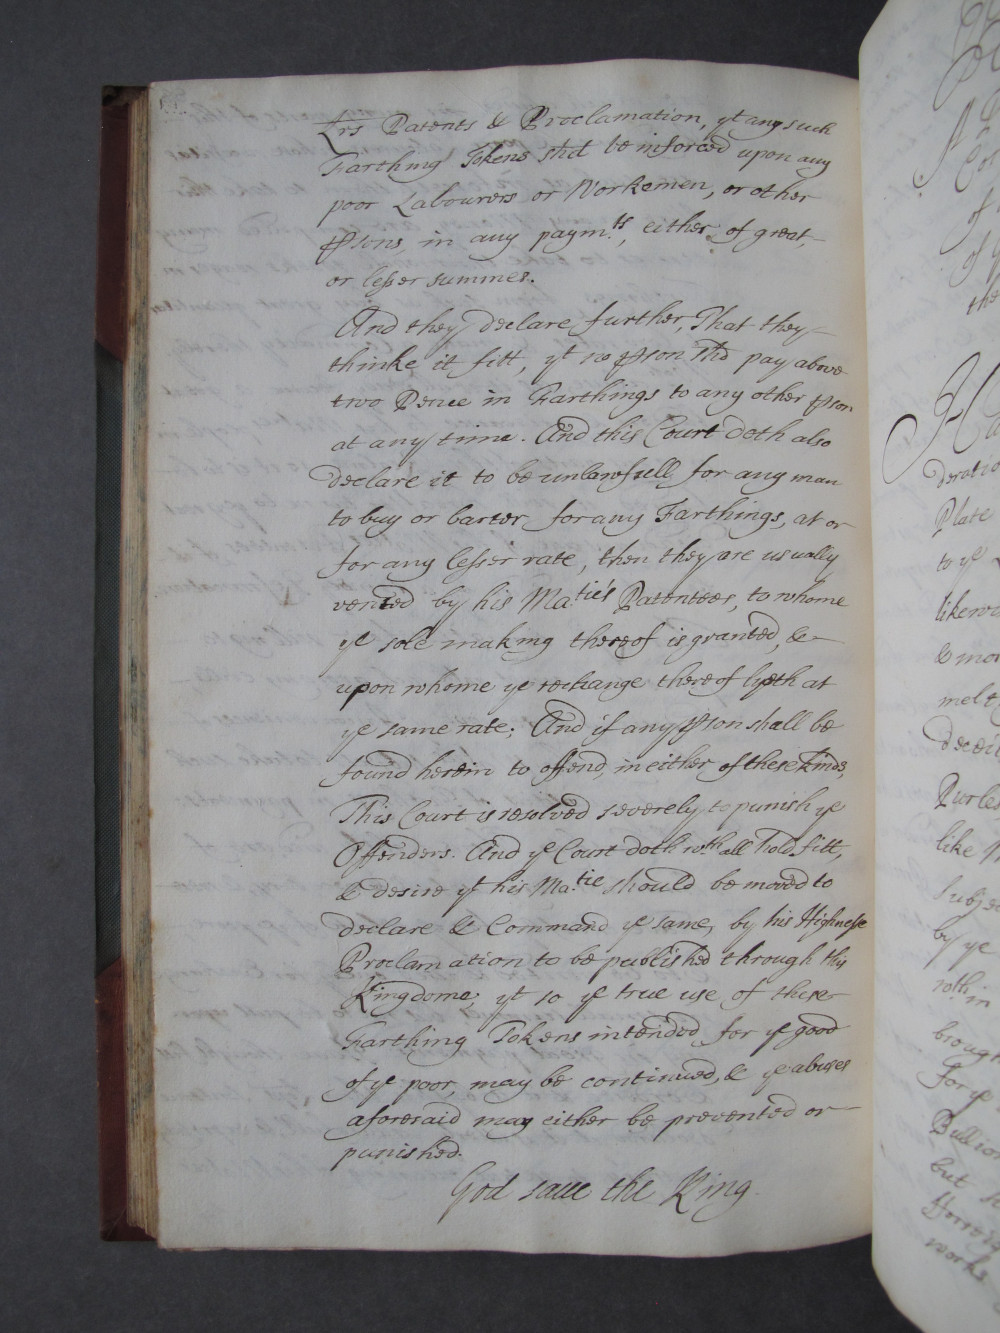 Lrs Patents & Proclamation, yt any such
Farthing Tokens sh'd be inforced upon any
poor Labourers or Workemen, or other
psons, in any paym.ts, either of great,
or lesser summes.
And they declare further, That they
thinke it fitt, yt no pson sh'd pay above
two Pence in Farthings to any other pson
at any time. And this Court doth also
declare it to be unlawfull for any man
to buy or barter for any Farthings, at or
for any lesser rate, then they are usually
vented by his Ma.tie's Patentees, to whome
ye sole making thereof is granted, &
upon whome ye rechange thereof lyeth at
ye same rate; And if any pson shall be
found herein to offend, in either of these kinds,
This Court is resolved severely to punish ye
Offenders. And ye Court doth wth all hold fitt,
& desire yt his Ma.tie should be moved to
declare & Command ye same, by his Highnesse
Proclamation to be published through this
Kingdome, yt so ye true use of these
Farthing Tokens intended for ye good
of ye poor, may be continued, & ye abuses
aforesaid may either be prevented or
punished.
God save the King.
of
of y
the
Plate
to ye
likew
& mo
melt
Decei
Purle
like
Subje
by ye
wth in
brough
For ye
Bullion
but
works